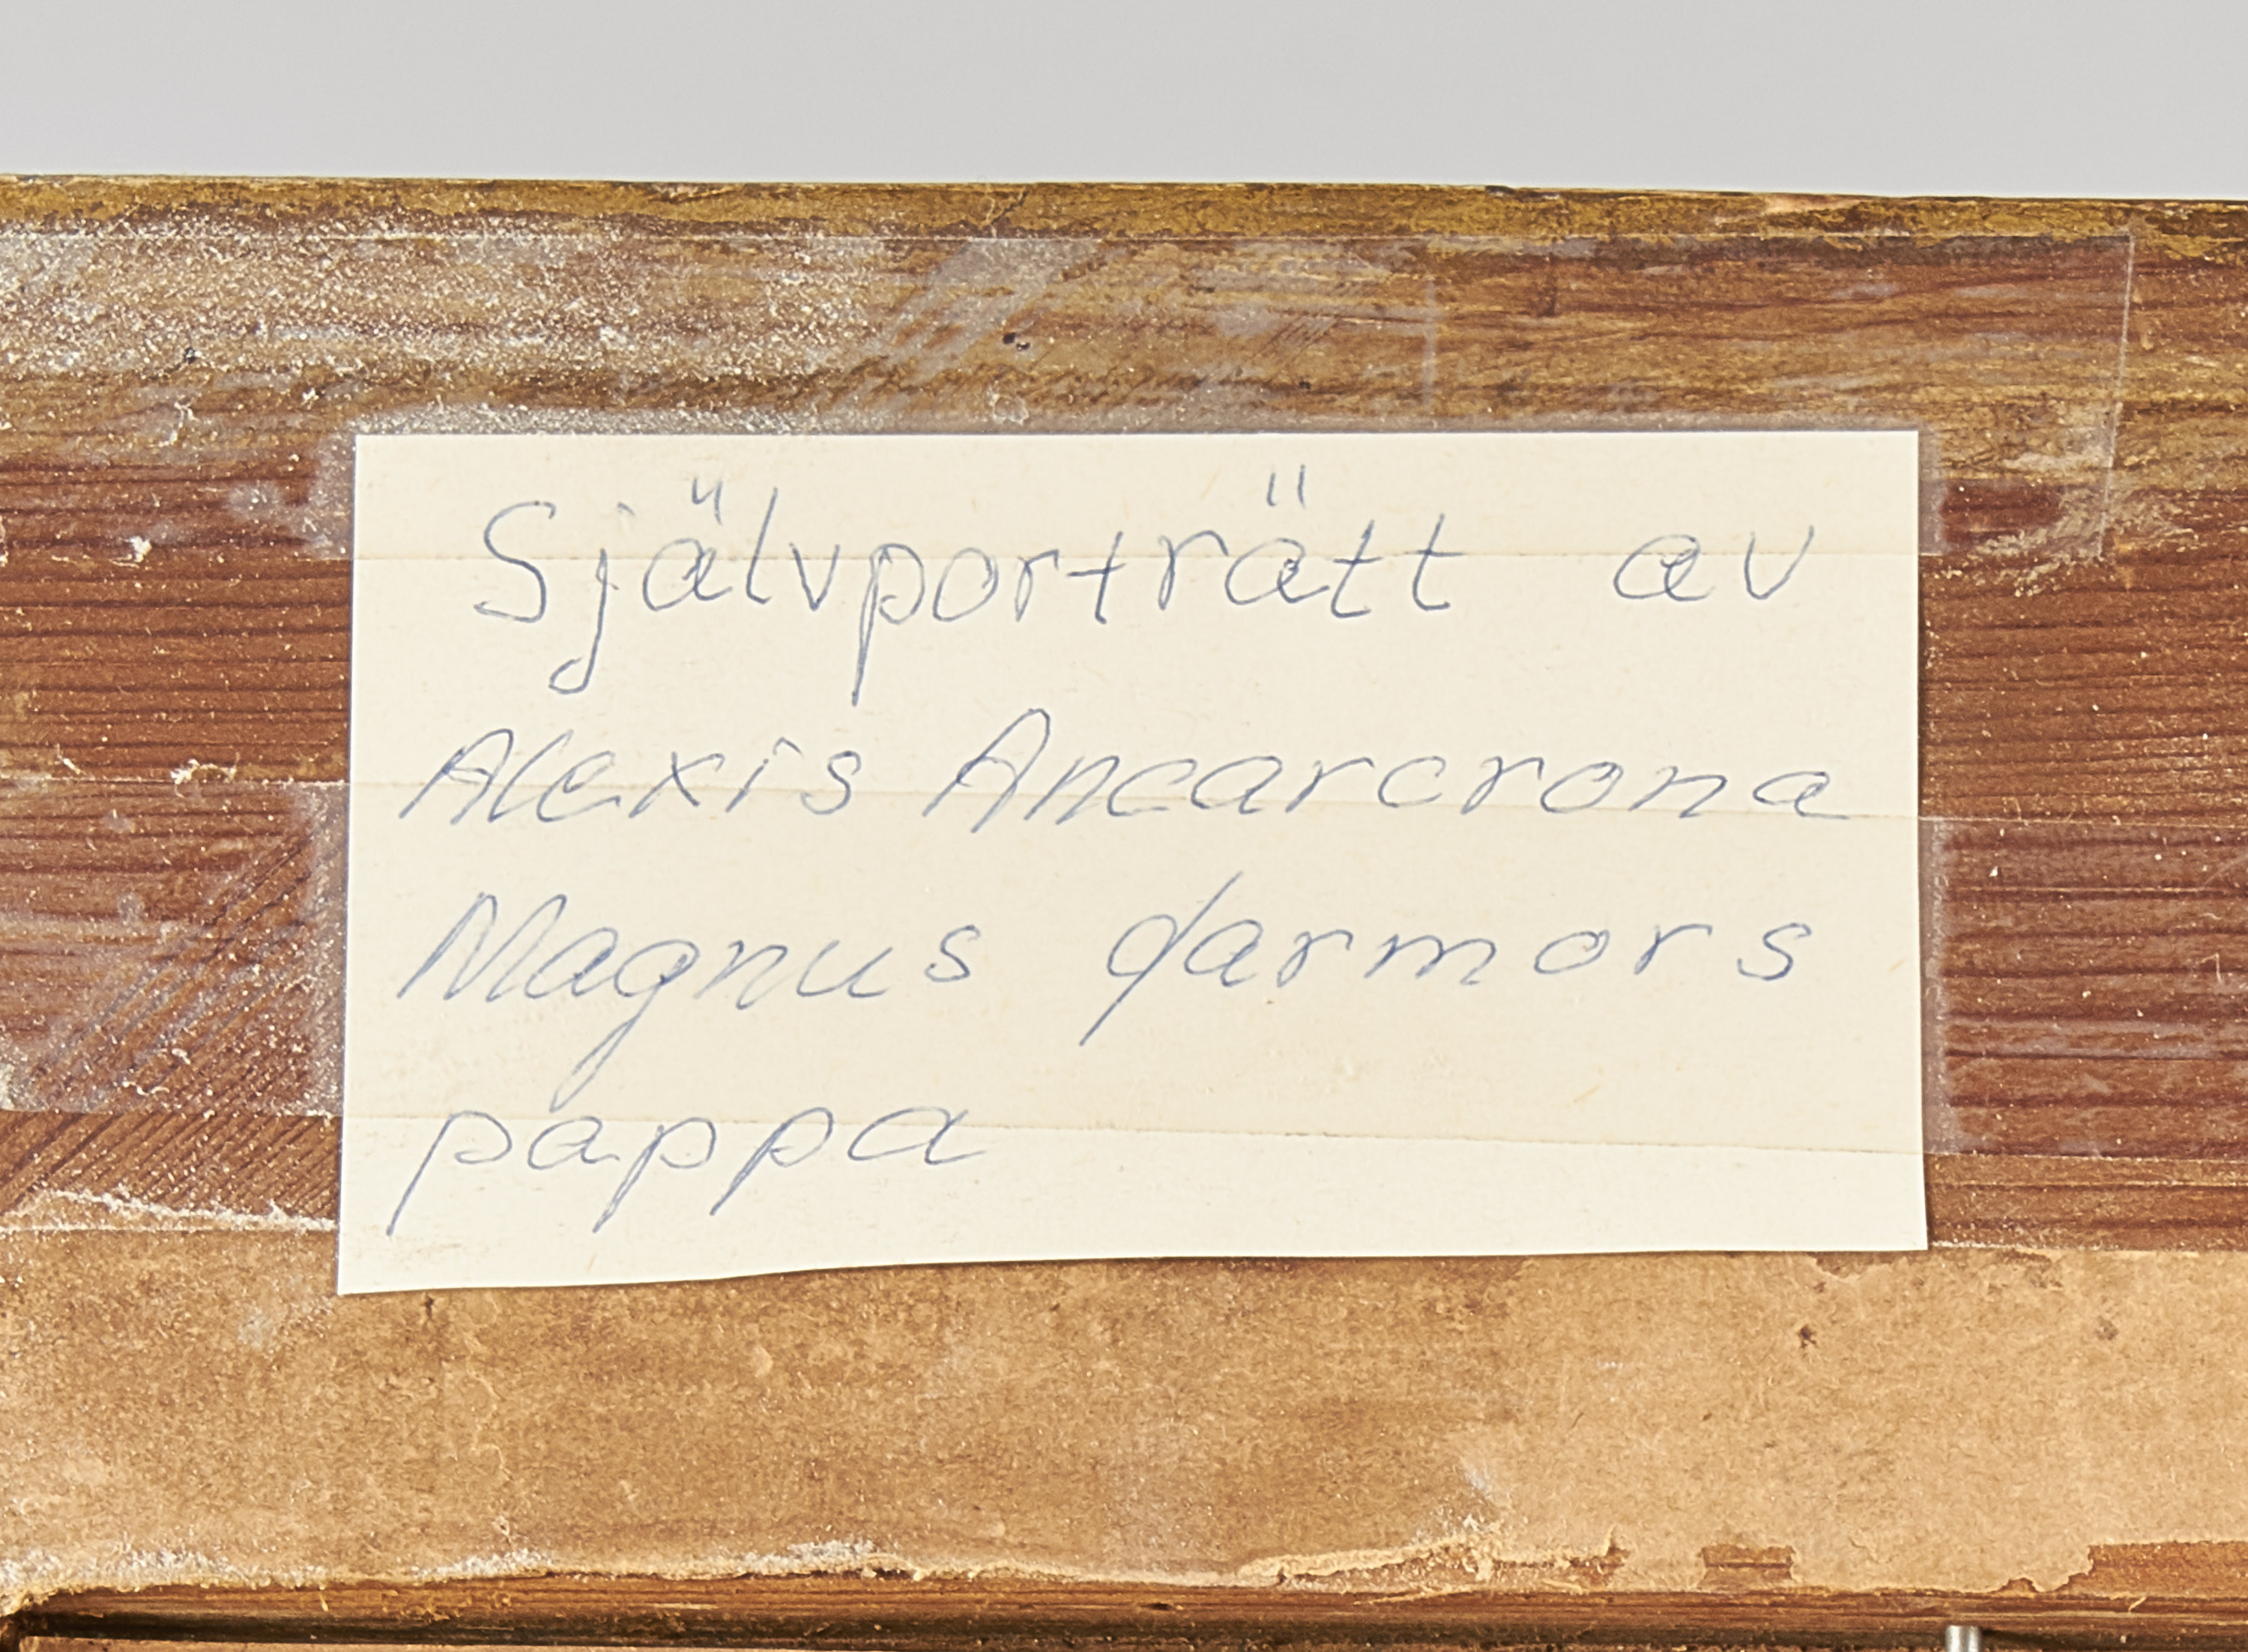 Självporträtt av
Alexis Ancarcrona
Magnus farmors
pappa